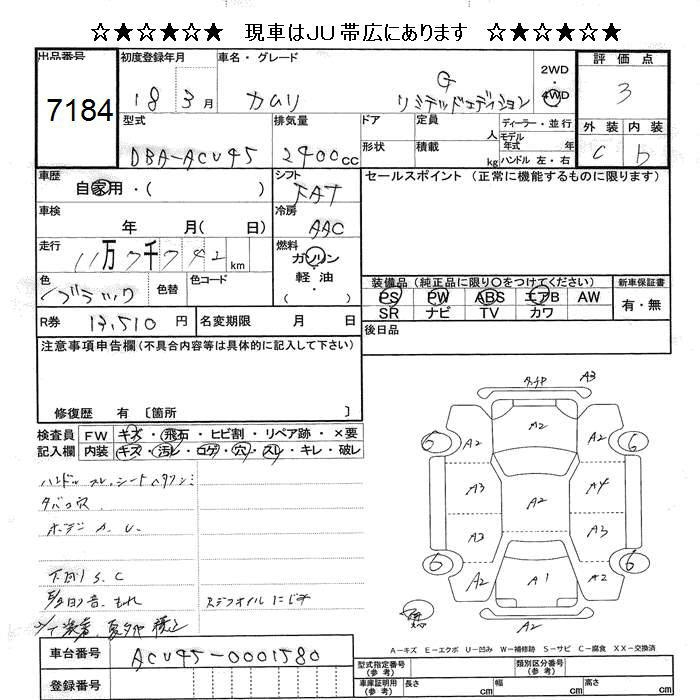 ☆★☆★☆★☆ 現車はJU帯広にあります ☆★☆★☆★☆
出品番号 初度登録年月 車名・グレード 2WD 評価点
7184 18 3月 カムリ G リミテッドエディション 4WD 3
型式 排気量 ドア 定員 人 ディーラー・並行 外装 内装
DBA-ACV45 2400cc 形状 積載 kg モデル年式 年 ハンドル 左・右 C b
車歴 自家用・( ) シフト FAT セールスポイント (正常に機能するものに限ります)
車検 年 月( 日) 冷房 AAC
走行 11万7千742km 燃料 ガソリン
軽油
( )
色 ブラック 色替 色コード
装備品(純正品に限り〇をつけてください) 新車保証書
PS PW ABS エアB AW 有・無
SR ナビ TV カワ
R券 13,510円 名変期限 月 日 後日品
注意事項申告欄(不具合内容等は具体的に記入して下さい)
修復歴 有〔箇所
検査員 FW キズ・飛石・ヒビ割・リペア跡・×要
記入欄 内装 キズ・汚レ・コゲ・穴・スレ・キレ・破レ
ハンドル スレ、シート
タバコ穴
ボデー A、U
下廻り S、C
タッチP A3
A2
6 A2 A2 6
A3 A2 A4
A3 A3
6 A2 A1 A2 6
A2
A-キズ E-エクボ U-凹み W-補修跡 S-サビ C-腐食 XX-交換済
車台番号 ACV45-0001580
登録番号
型式指定番号(参考) 類別区分番号(参考)
車庫証明用(参考) 長さ cm 幅 cm 高さ cm